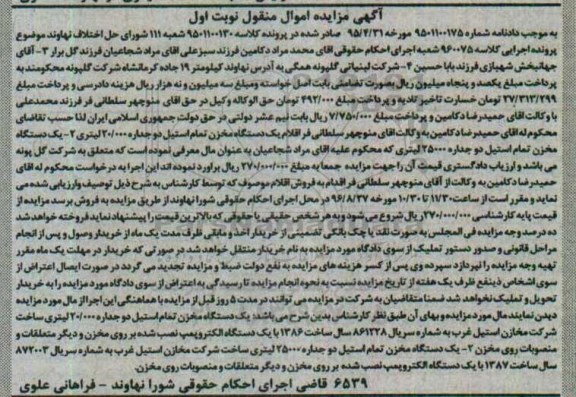 آگهی مزایده اموال منقول نوبت اول
به موجب دادنامه شماره ۹۵۰۱۱۰۰۱۷۵ مورخه ۹۵/۴/۳۱ صادر شده در پرونده کلاسه ۹۵۰۱۱۰۰۱۳۰ شعبه ۱۱۱ شورای حل اختلاف نهاوند موضوع
پرونده اجرایی کلاسه ۹۶۰۰۷۵ شعبه اجرای احکام حقوقی آقای محمد مراد دکامین فرزند سبزعلی آقای مراد شجاعیان فرزند گل برار ۳- آقای
جهانبخش شهبازی فرزند بابا حسین ۴- شرکت لبنیاتی گلپونه همگی به آدرس نهاوند کیلومتر ۱۹ جاده کرمانشاه شرکت گلپونه محکومند به
پرداخت مبلغ یکصد و پنجاه میلیون ریال بصورت تضامنی بابت اصل خواسته ومبلغ سه میلیون و نه هزار ریال هزینه دادرسی و پرداخت مبلغ
۲۷/۳۱۳/۲۹۹ تومان خسارت تاخیر تادیه و پرداخت مبلغ ۴۹۲/۰۰۰ تومان حق الوکاله وکیل در حق آقای منوچهر سلطانی فر فرزند محمدعلی
با وکالت آقای حمیدرضا دکامین و پرداخت مبلغ ۷/۷۵۰/۰۰۰ ریال بابت نیم عشر دولتی در حق دولت جمهوری اسلامی ایران لذا حسب تقاضای
محکوم له آقای حمیدرضا دکامین به وکالت آقای منوچهر سلطانی فر اقلام یک دستگاه مخزن تمام استیل دو جداره ۲۰/۰۰۰ لیتری ۲- یک دستگاه
مخزن تمام استیل دو جداره ۲۵۰۰۰ لیتری که محکوم علیه آقای مراد شجاعیان به عنوان مال معرفی نموده است که متعلق به شرکت گل پونه
می باشد و ارزیاب دادگستری قیمت آن را جهت مزایده جمعا به مبلغ ۲۷۰/۰۰۰/۰۰۰ ریال برآورد نموده اند این اجرا به درخواست محکوم له آقای
حمیدرضا دکامین به وکالت از آقای منوچهر سلطانی فر اقدام به فروش اقلام موصوف که توسط کارشناس به شرح ذیل توصیف وارزیابی شده می
نماید و مقرر است از ساعت ۱۱/۳۰ تا ۱۰/۳۰ مورخ ۹۶/۸/۲۷ در محل اجرای احکام حقوقی شورا نهاوند از طریق مزایده به فروش برسد مزایده از
قیمت پایه کارشناسی ۲۷۰/۰۰۰/۰۰۰ ریال شروع می شود و به هر شخص حقیقی یا حقوقی که بالاترین قیمت را پیشنهاد نماید فروخته خواهد شد
ده درصد وجه مزایده فی المجلس به صورت نقد یا چک بانکی تضمینی از خریدار اخذ و مابقی ظرف مدت یک ماه از خریدار وصول و پس از انجام
مراحل قانونی و صدور دستور تملیک از سوی دادگاه مورد مزایده به نام خریدار منتقل خواهد شد در صورتی که خریدار در مهلت یک ماه مقرر
تهیه وجه مزایده را نپردازد سپرده وی پس از کسر هزینه های مزایده به نفع دولت ضبط و مزایده تجدید می گردد در صورت ایصال اعتراض از
سوی اشخاص ذینفع ظرف یک هفته از تاریخ مزایده نسبت به نحوه انجام مزایده تا رسیدگی به اعتراض از سوی دادگاه مورد مزایده را به خریدار
تحویل و تملیک نخواهد شد ضمنا متقاضیان به شرکت در مزایده می توانند در مدت ۵ روز قبل از مزایده با هماهنگی این اجرا از مال مورد مزایده
دیدن نمایند مال مورد مزایده و بهای آن طبق نظر کارشناس بدین شرح می باشد: یک دستگاه مخزن تمام استیل دو جداره ۲۰/۰۰۰ لیتری ساخت
شرکت مخازن استیل غرب به شماره سریال ۸۶۱۲۲۸ سال ساخت ۱۳۸۶ با یک دستگاه الکتروپمپ نصب شده بر روی مخزن و دیگر متعلقات و
منصوبات روی مخزن ۲- یک دستگاه مخزن تمام استیل دو جداره ۲۵۰۰۰ لیتری ساخت شرکت مخازن استیل غرب به شماره سریال ۸۷۲۰۰۳
سال ساخت ۱۳۸۷ با یک دستگاه الکتروپمپ نصب شده بر روی مخزن و دیگر متعلقات و منصوبات روی مخزن.
۶۵۳۹ قاضی اجرای احکام حقوقی شورا نهاوند - فراهانی علوی